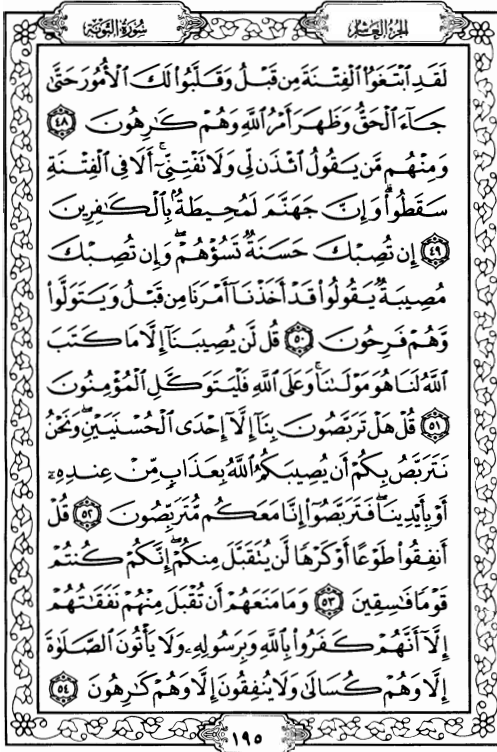 سُورَةُ التَّوبَةِ
الجُزءُ العَاشِرُ
لَقَدِ ٱبْتَغَوُاْ ٱلْفِتْنَةَ مِن قَبْلُ وَقَلَّبُواْ لَكَ ٱلْأُمُورَ حَتَّىٰ
جَآءَ ٱلْحَقُّ وَظَهَرَ أَمْرُ ٱللَّهِ وَهُمْ كَٰرِهُونَ ٤٨
وَمِنْهُم مَّن يَقُولُ ٱئْذَن لِّى وَلَا تَفْتِنِّىٓ ۚ أَلَا فِى ٱلْفِتْنَةِ
سَقَطُواْ ۗ وَإِنَّ جَهَنَّمَ لَمُحِيطَةٌۢ بِٱلْكَٰفِرِينَ
٤٩ إِن تُصِبْكَ حَسَنَةٌ تَسُؤْهُمْ ۖ وَإِن تُصِبْكَ
مُصِيبَةٌ يَقُولُواْ قَدْ أَخَذْنَآ أَمْرَنَا مِن قَبْلُ وَيَتَوَلَّواْ
وَّهُمْ فَرِحُونَ ٥٠ قُل لَّن يُصِيبَنَآ إِلَّا مَا كَتَبَ
ٱللَّهُ لَنَا هُوَ مَوْلَىٰنَا ۚ وَعَلَى ٱللَّهِ فَلْيَتَوَكَّلِ ٱلْمُؤْمِنُونَ
٥١ قُلْ هَلْ تَرَبَّصُونَ بِنَآ إِلَّآ إِحْدَى ٱلْحُسْنَيَيْنِ ۖ وَنَحْنُ
نَتَرَبَّصُ بِكُمْ أَن يُصِيبَكُمُ ٱللَّهُ بِعَذَابٍ مِّنْ عِندِهِۦٓ
أَوْ بِأَيْدِينَا ۖ فَتَرَبَّصُوٓاْ إِنَّا مَعَكُم مُّتَرَبِّصُونَ ٥٢ قُلْ
أَنفِقُواْ طَوْعًا أَوْ كَرْهًا لَّن يُتَقَبَّلَ مِنكُمْ ۖ إِنَّكُمْ كُنتُمْ
قَوْمًا فَٰسِقِينَ ٥٣ وَمَا مَنَعَهُمْ أَن تُقْبَلَ مِنْهُمْ نَفَقَٰتُهُمْ
إِلَّآ أَنَّهُمْ كَفَرُواْ بِٱللَّهِ وَبِرَسُولِهِۦ وَلَا يَأْتُونَ ٱلصَّلَوٰةَ
إِلَّا وَهُمْ كُسَالَىٰ وَلَا يُنفِقُونَ إِلَّا وَهُمْ كَٰرِهُونَ ٥٤
١٩٥